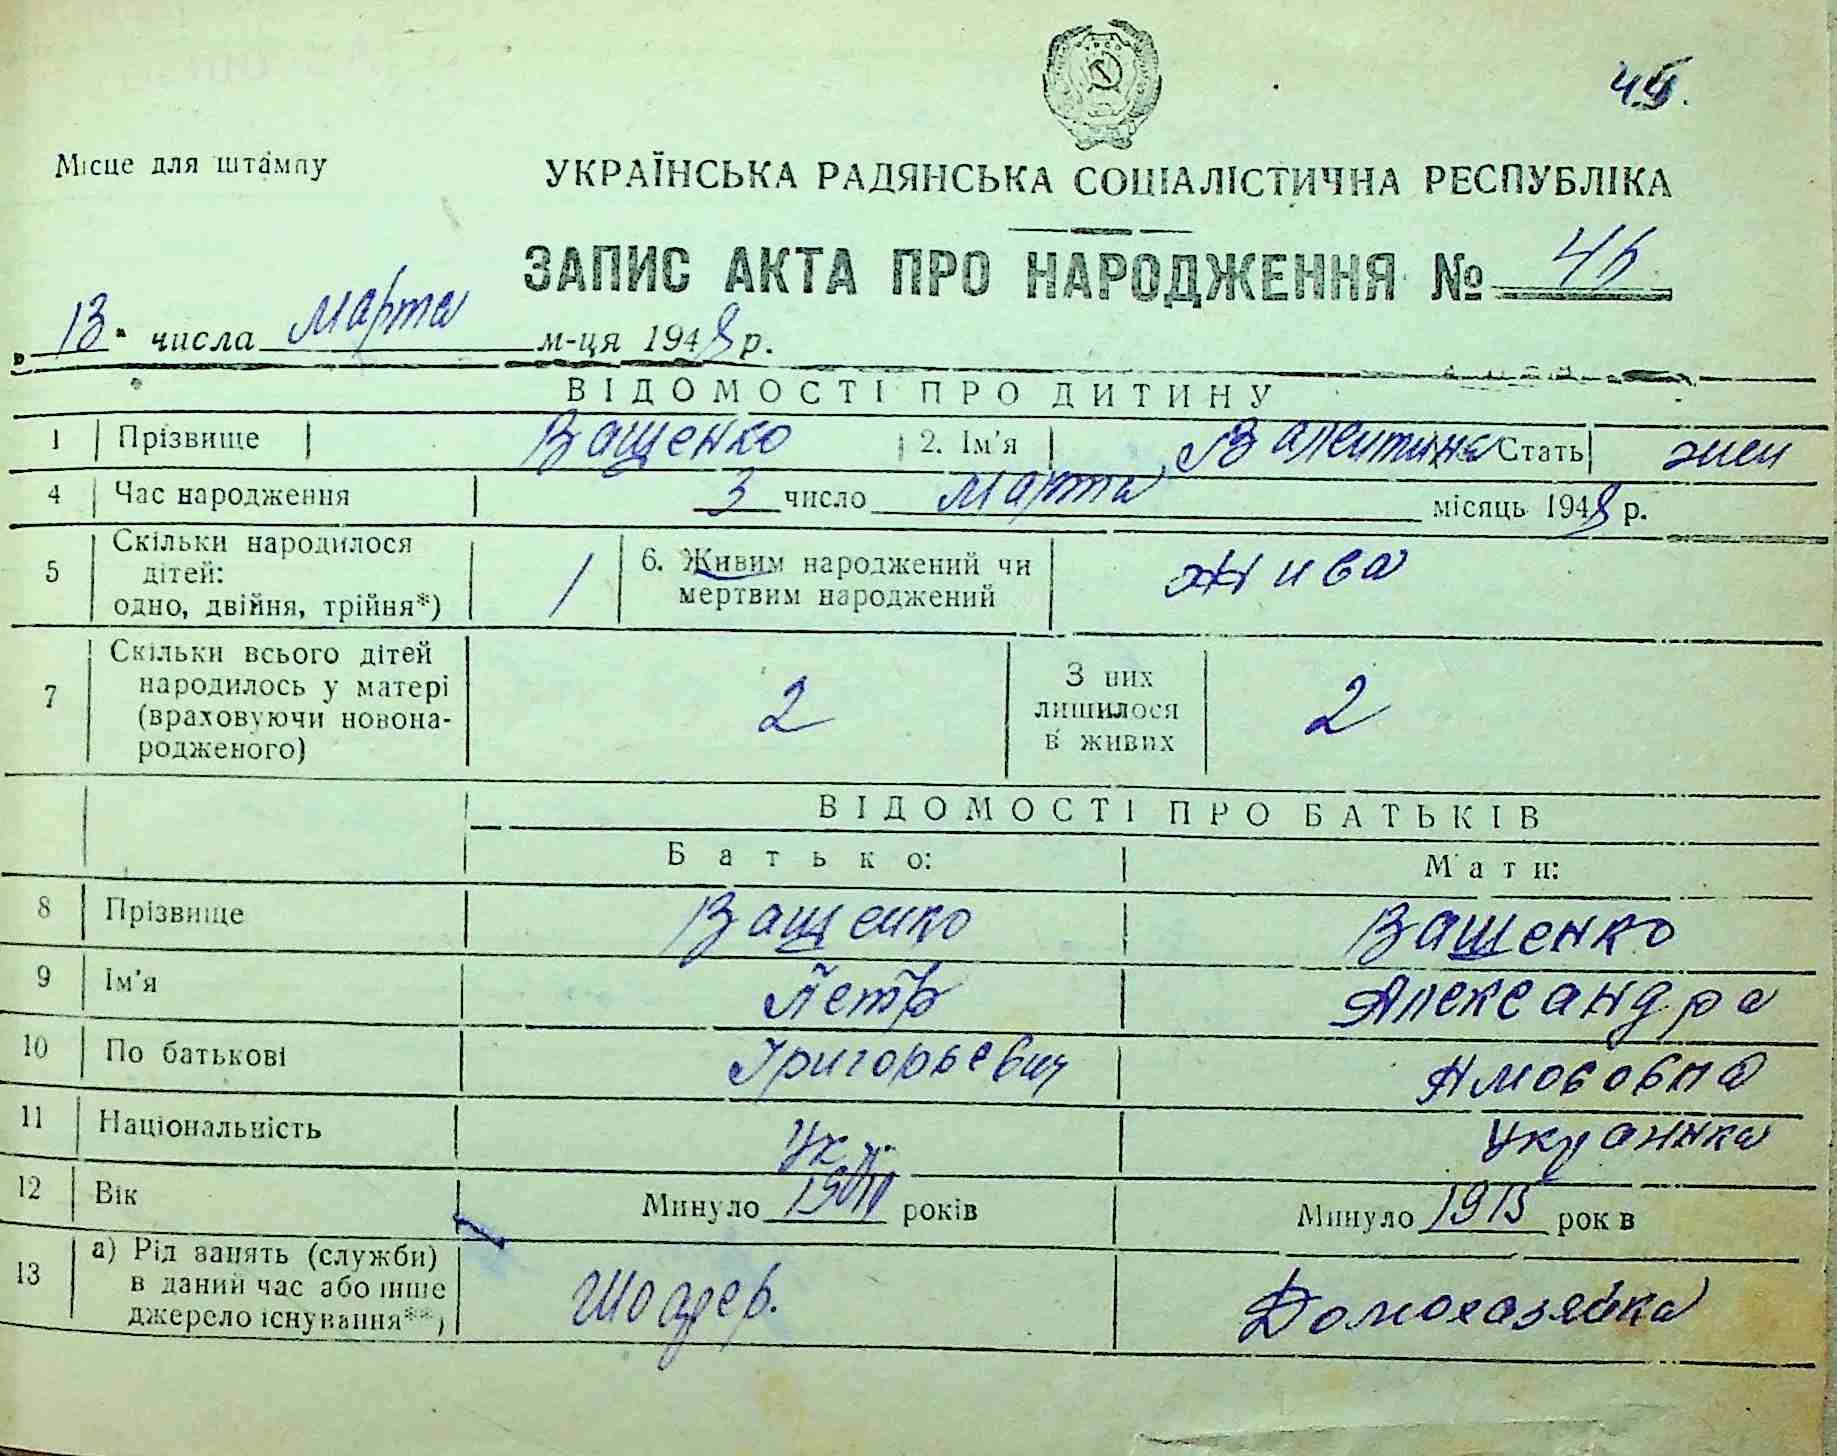 45.
Місце для штампу
УКРАЇНСЬКА РАДЯНСЬКА СОЦІАЛІСТИЧНА РЕСПУБЛІКА
ЗАПИС АКТА ПРО НАРОДЖЕННЯ № 45
„13" числа марта м-ця 1948 р.
ВІДОМОСТІ ПРО ДИТИНУ
1 Прізвище Ващенко 2. Ім'я Валентина Стать жен
4 Час народження 3 число марта місяць 1948 р.
5 Скільки народилося дітей: одно, двійня, трійня*) 1 6. Живим народжений чи мертвим народжений жива
7 Скільки всього дітей народилось у матері (враховуючи новонародженого) 2 З них лишилося в живих 2
ВІДОМОСТІ ПРО БАТЬКІВ
Батько: Мати:
8 Прізвище Ващенко Ващенко
9 Ім'я Петр Александра
10 По батькові Григорьевич Амосовна
11 Національність Укр. Украинка
12 Вік Минуло років Минуло 1913 рок в
13 а) Рід занять (служби) в даний час або інше джерело існування**) Домохозяйка